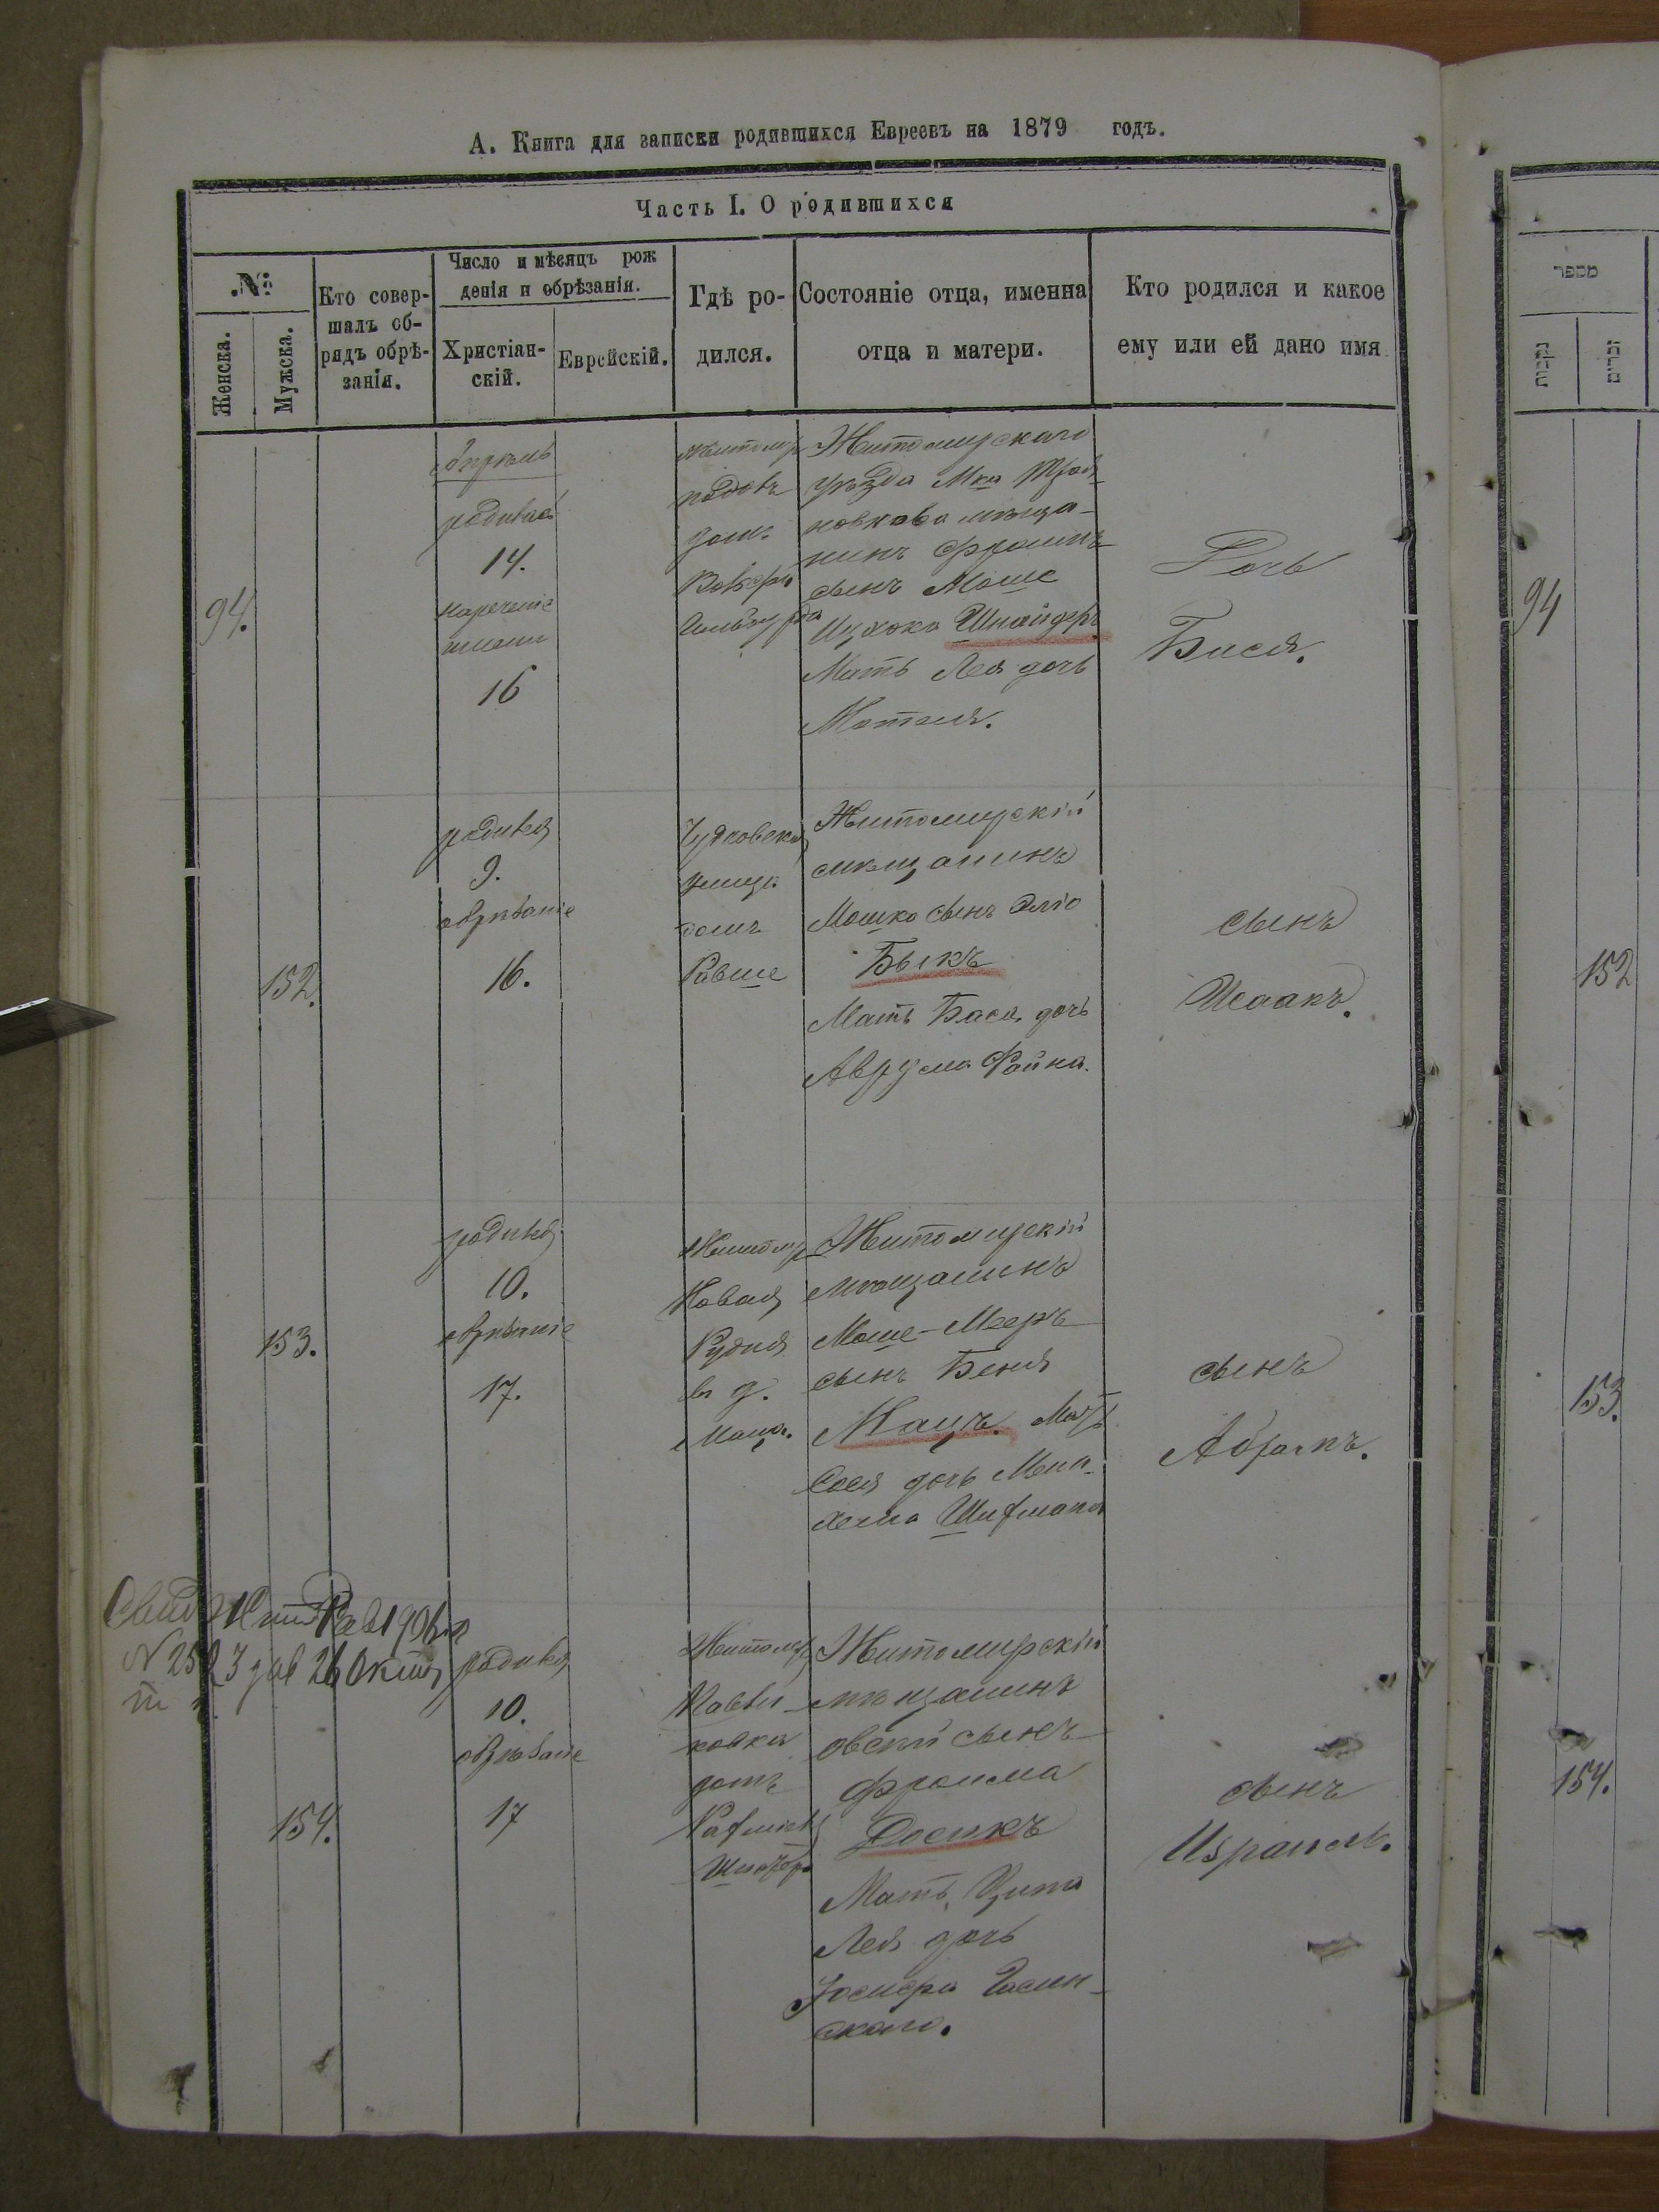 А. Книга для записки родившихся Евреевъ на 1879 годъ.
Часть I. О родившихся
№
Женска.
Мужска.
Кто совер-
шалъ об-
рядъ обрѣ-
занія.
Число и мѣсяцъ рож
денія и обрѣзанія.
Христіан-
скій.
Еврейскій.
Гдѣ ро-
дился.
Состояніе отца, именна
отца и матери.
Кто родился и какое
ему или ей дано имя
94.
Апрѣль
родилась
14.
нареченіе
имени
16
Житомир
домъ
Житомирскаго
уѣзда Мка Троя-
новкова мѣща-
нинъ Фроимъ
сынъ Моше
Ицхока Шнайдеръ
Мать Лея дочь
Мотеля.
Дочь
Бася.
152.
родился
9.
обрѣзаніе
16.
Чудновская
улица
домъ
Равше
Житомирскій
мѣщанинъ
Мошко сынъ Эліо
Быкъ
Мать Бася дочь
Аврума Файна.
сынъ
Исаакъ.
153.
родился
10.
обрѣзаніе
17.
Житомир
Новая
Рудня
въ д.
Маца.
Житомирскій
мѣщанинъ
Моше-Мееръ
сынъ Беня
Мацъ. Мать
Сося дочь Мена-
хема Шифмана
сынъ
Абрамъ.
154.
родился
10.
обрѣзаніе
17
Житомир
домъ
Житомирскій
мѣщанинъ
овсей сынъ
Фроима
Досикъ
Мать Цита
Лея дочь
сынъ
Израиль.
מספר
נקבות
זכרים
94
152
153.
154.